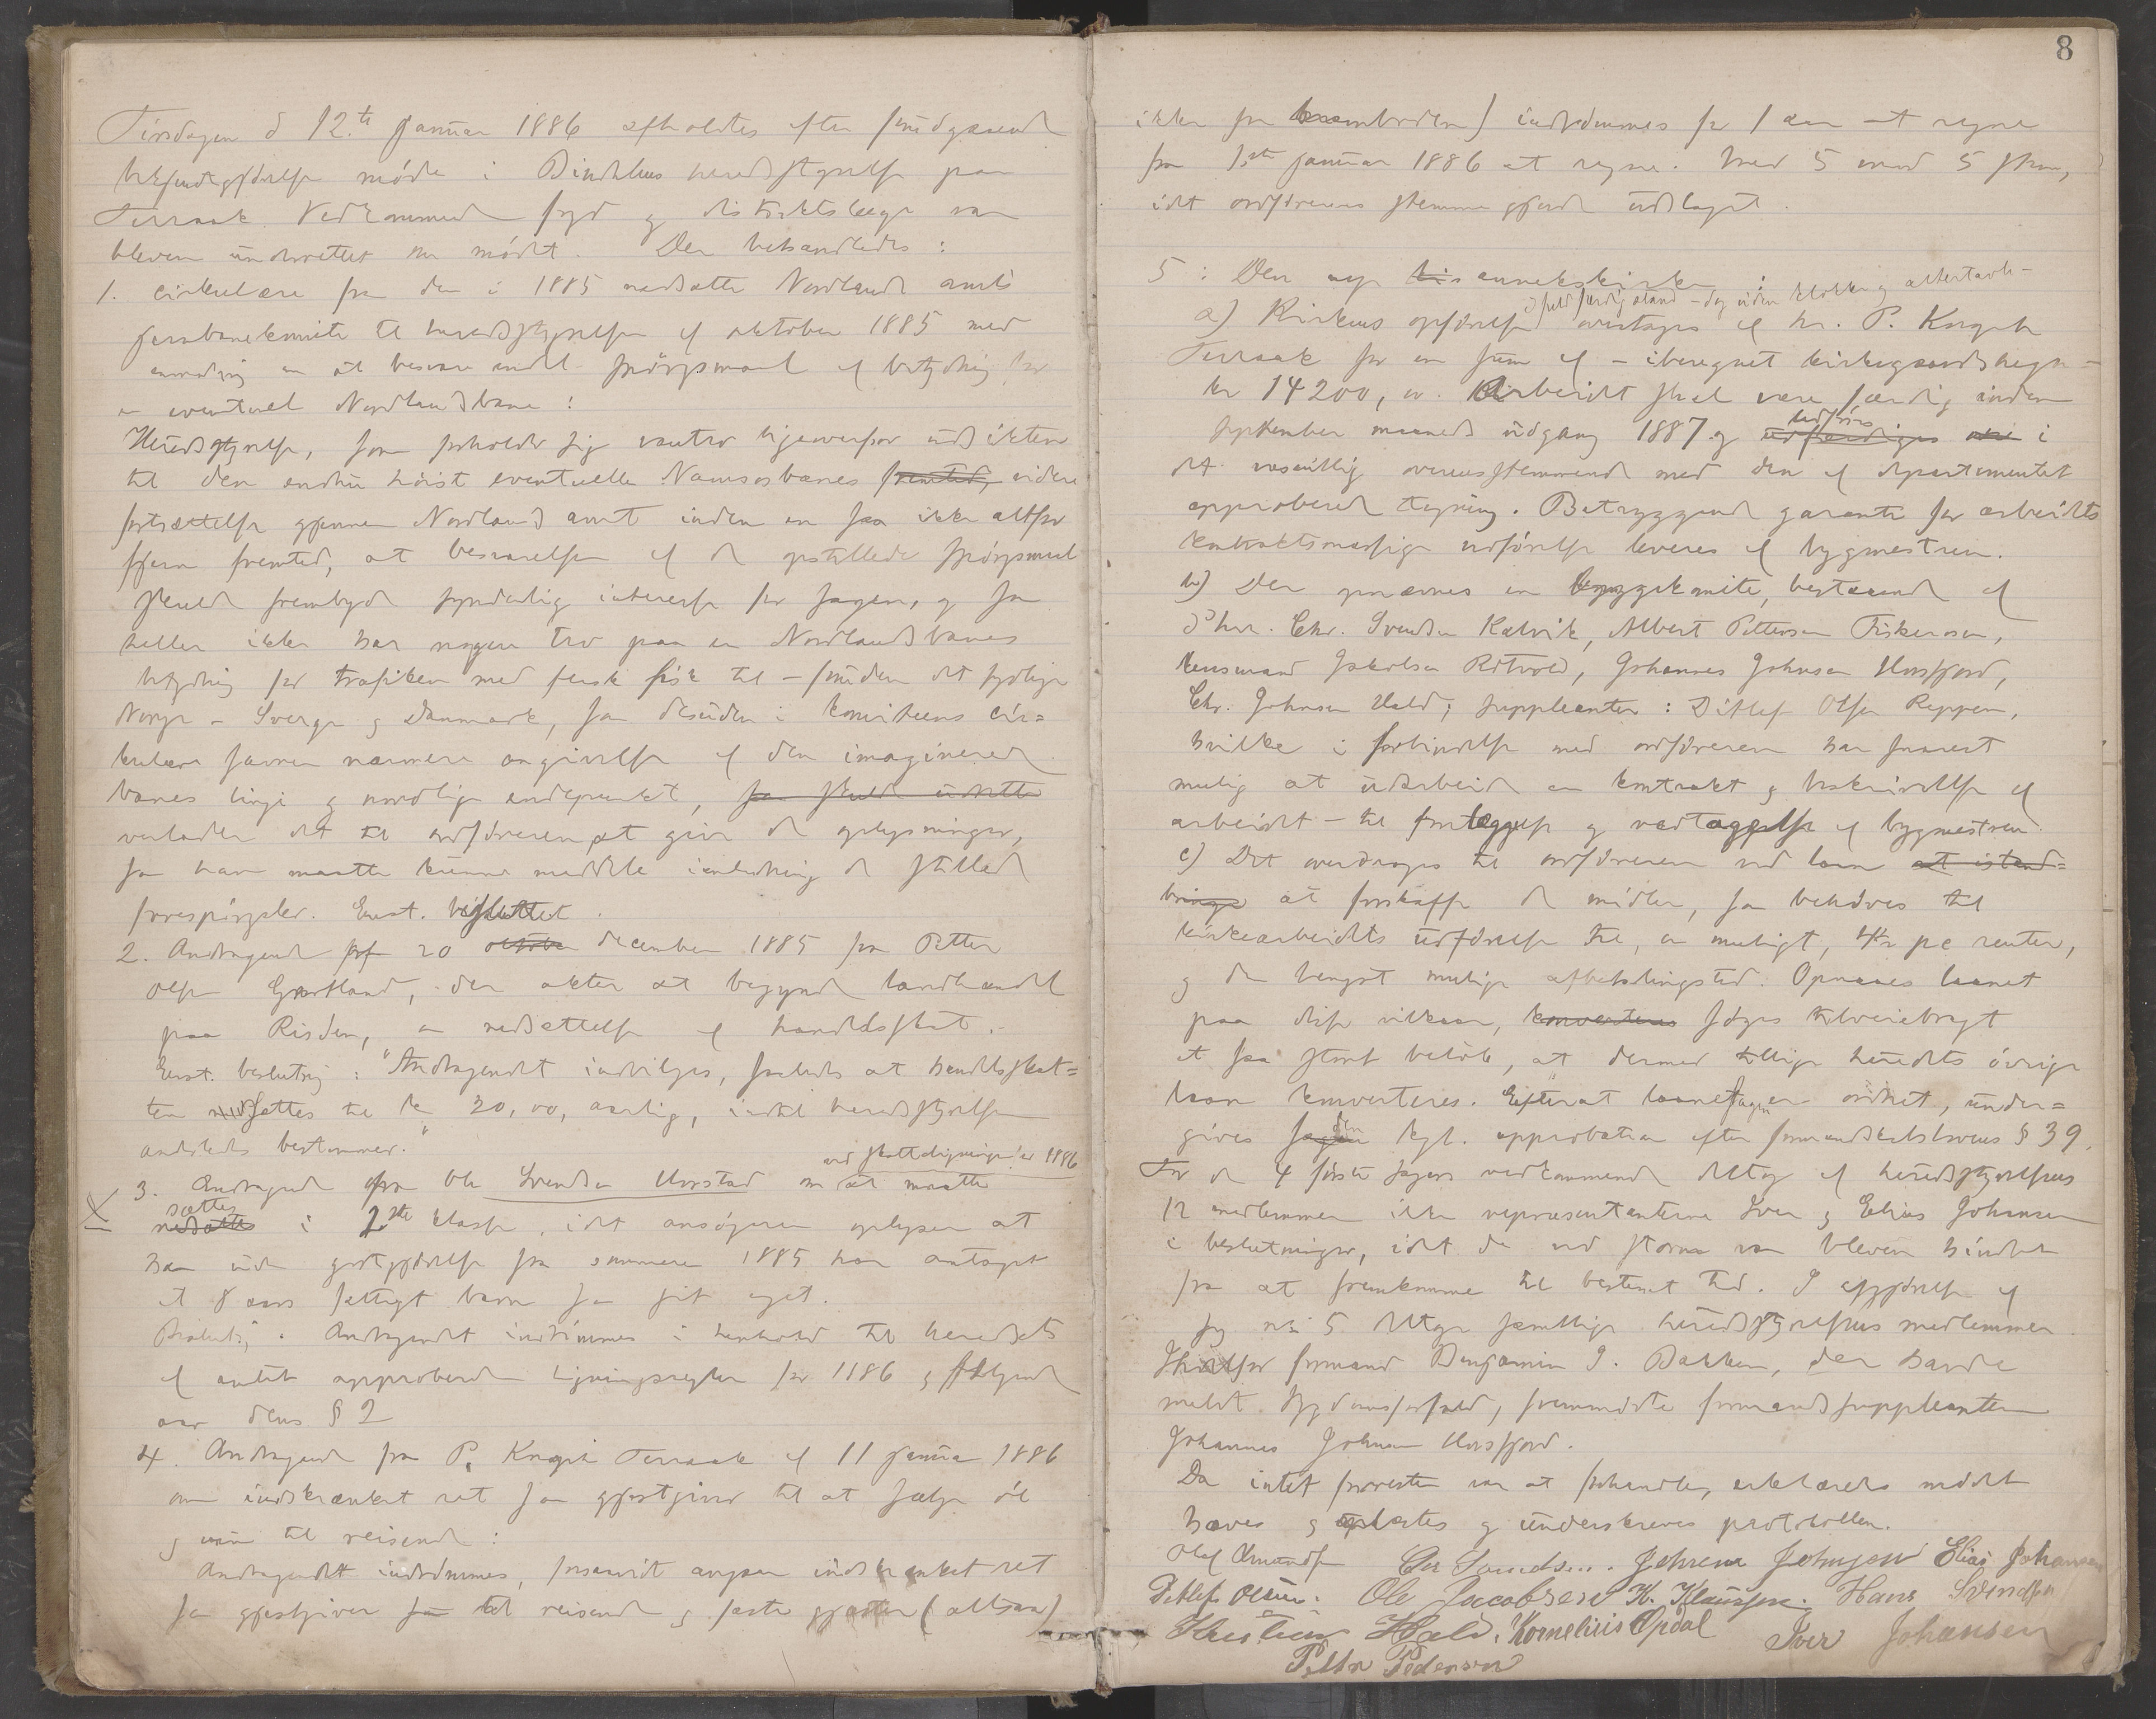 Tirsdagen d 12.te januar 1886 afholdtes efter forudgaaende
bekjendtgjørelse møde i Bindalens heredsstyrelse paa
Terraak. Vedkommende fogd og distriktslæge var
bleven underrettet om mødet. Der behandledes:
1. Cirkulære fra den i 1885 nedsatte Nordlands amts
jernbanekomite til heredsstyrelsen af oktober 1885 med
anmodning om at besvare endel spørgsmaal af betydning for
en eventuel Nordlandsbane:
Heredsstyrelsen, som forholder sig vantro ligeoverfor udsigten
til den endnu høist eventuelle Namsosbanes fremtid, videre
fortsættelse gjennem Nordlands amt inden en saa ikke altfor
fjern fremtid, at besvarelsen af de opstillede spørgsmaal
skulde frembyde synderlig interesse for sagen, og som
heller ikke har nogen tro paa en Nordlandsbanes
betydning for trafiken med fersk fisk til – foruden det sydlige
Norge – Sverge og Danmark, som desuden i komiteens cir=
kulære savner nærmere angivelse af den imaginerede
banes linje og nordlige endepunkt, som skulde
overlader det til ordføreren at give de oplysninger,
som han maatte kunne meddele i anledning de stillede
forespørgsler. Enst. besluttet.
2. Andragende af 20 oktober december 1885 fra Petter
Olsen, der akter at begynde landhandel
paa Risden, om nedsættelse af handelsskat.
Enst. beslutning: "Andragendet indvilges, saaledes at handelsskat=
ten nedsettes til kr 20,00, aarlig, indtil heredsstyrelsen
anderledes bestemmer."
ved skatteligningen for 1886
3. Andragende fra Ole Svendsen Horstad om at maatte
sættes
nedsættes i 2den klasse, idet ansøgeren oplyser at
han uden godtgjørelse fra sommeren 1885 har antaget
et 8 aars fattigt barn som sit eget.
Beslutn. Andragendet indrømmes i henhold til heredets
af amtet approberede ligningsregler for 1886 og følgende
aar dens § 2
4. Andragende fra P. Knoph Terraak af 11 januar 1886
om indskrænket ret som gjestgiver til at sælge øl
og vin til reisende:
Andragendet indrømmes, forsaavidt angaar indskrænket ret
som gjestgiver til reisende og faste gjæster (altsaa
8
ikke for) indrømmes for 1 aar at regne
fra 1ste januar 1886 at regne. Med 5 mod 5 stem.,
idet ordførerens stemme gjorde udslaget.
5: Den nye annekskirke:
i fuld færdig stand – dog uden klokke og altertavle –
a) Kirkens opførelse overtages af hr. P. Knoph
Terraak for en sum af – iberegnet kirkegaardshegn –
kr 14200,00. Arbeidet skal være færdig inden
september maaneds udgang 1887 og udføres udfærdiges i
det væsentlig overensstemmende med den af departementet
approberede tegning. Betryggende garanti for arbeidets
kontraktsmæssige udførelse leveres af bygmesteren.
b) Der opnævnes en byggekomite, bestaaende af
d'hrr. Chr. Svendsen Kalvik, Albert Pettersen Fiskerosen,
lensmand Jakobsen Røtvold, Johannes Johnsen Horsfjord,
Chr. Johnsen Hald; suppleanter: Ditlef Olsen Reppen,
hvilke i forbindelse med ordføreren har snarest
mulig at udarbeide en kontrakt og beskrivelse af
arbeidet – til forelæggelse og vedtaggelse af bygmesteren.
c) Det overdrages til ordføreren ved laan at istand=
bringe at forskaffe de midler, som behøves til
kirkearbeidets udførelse til, om muligt, 4½ pc renter,
og den længst mulige afbetalingstid. Opnaaes laanet
paa disse vilkaar, konverteres søges tilveiebragt
et saa stort beløb, at dermed tillige heredets øvrige
laan konverteres. Efterat laanesagen er ordnet, under=
gives sagen den kgl. approbation efter formandskabslovens § 39.
For de 4 første sagers vedkommende deltog af heredsstyrelsens
12 medlemmer ikke repræsentanterne Iver og Elias Johansen
i beslutninger, idet de ved storm var bleven hindret
fra at fremkomme til bestemt tid. I afgjørelse af
sag no 5 deltog samtlige heredsstyrelsens medlemmer.
Istedetfor formand Benjamin I. Bakken, der havde
meldt sygdomsforfald, fremmødte formandssuppleanten
Johannes Johnsen Horsfjord.
Da intet forresten var at forhandle, erklæredes mødet
hævet og oplæstes og underskreves protokollen.
Olaf Amundsen Chr Svendsen. Johanes Johnsen Elias Johansen
Detlef Olsen. Ole Jacobsen H. Klausen. Hans Svendsen
Kristian Hald. Kornelius Opdal Iver Johansen
Petter Pedersen